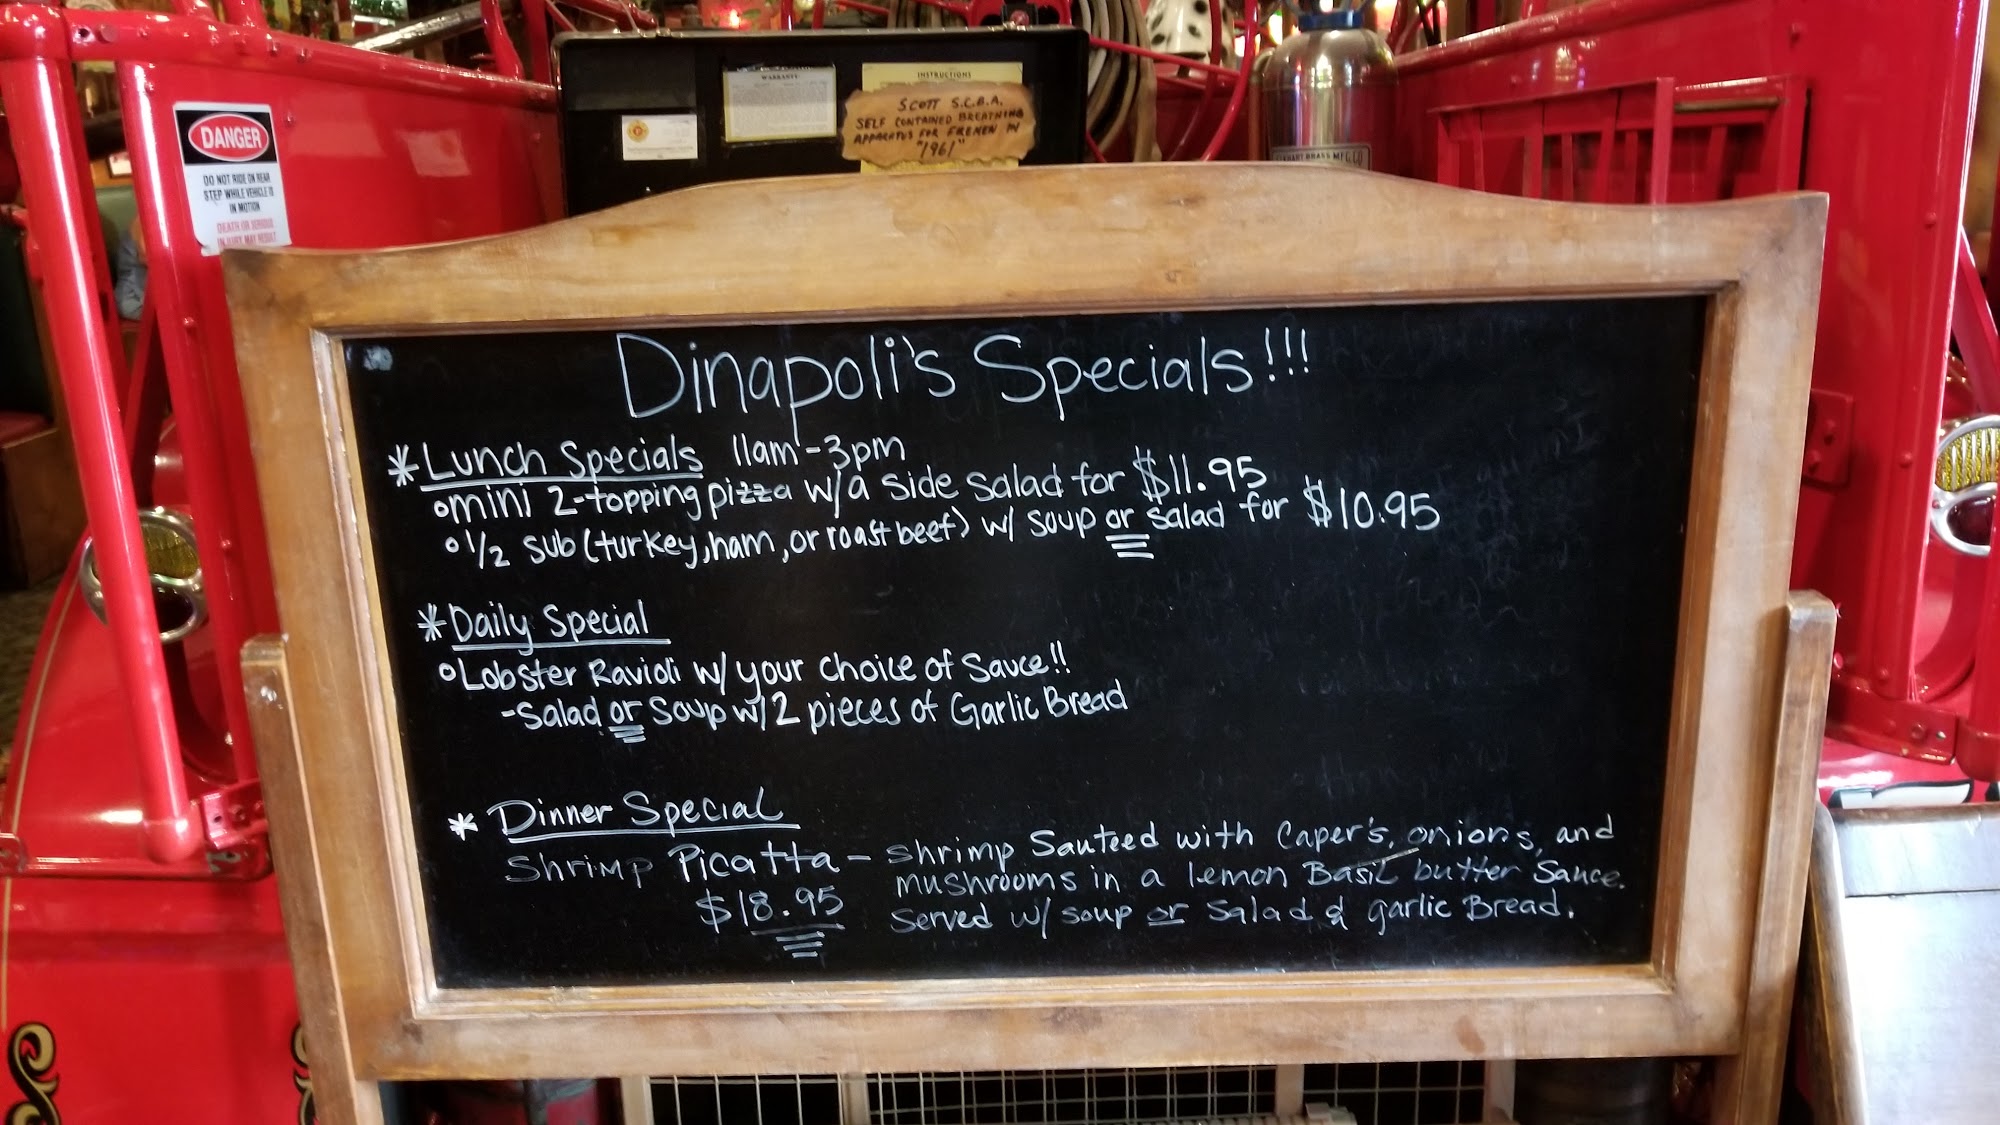 WARRANTY
INSTRUCTIONS
SCOTT S.C.B.A.
SELF CONTAINED BREATHING
APPARATUS FOR FIREMEN IN
"1961"
DANGER
DO NOT RIDE ON REAR
STEP WHILE VEHICLE IS
IN MOTION
DEATH OR SERIOUS
INJURY MAY RESULT
BRASS MFG CO
Dinapoli's Specials!!!
*Lunch Specials 11am-3pm
omini 2-topping pizza w/a side salad for $11.95
o1/2 sub (turkey, ham, or roast beef) w/ soup or salad for $10.95
*Daily Special
oLobster Ravioli w/ your choice of Sauce!!
-Salad or Soup w/ 2 pieces of Garlic Bread
* Dinner Special
Shrimp Picatta - shrimp Sauteed with Caper's, onions, and
mushrooms in a lemon Basil butter Sauce.
$18.95 served w/ soup or Salad & garlic Bread.